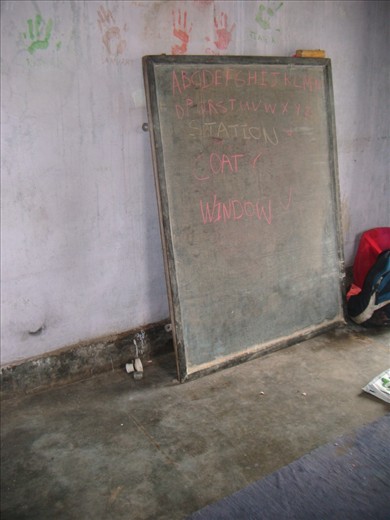 ABCDEFGHIJKLMN
OPQRSTUVWXYZ
STATION
COAT
WINDOW